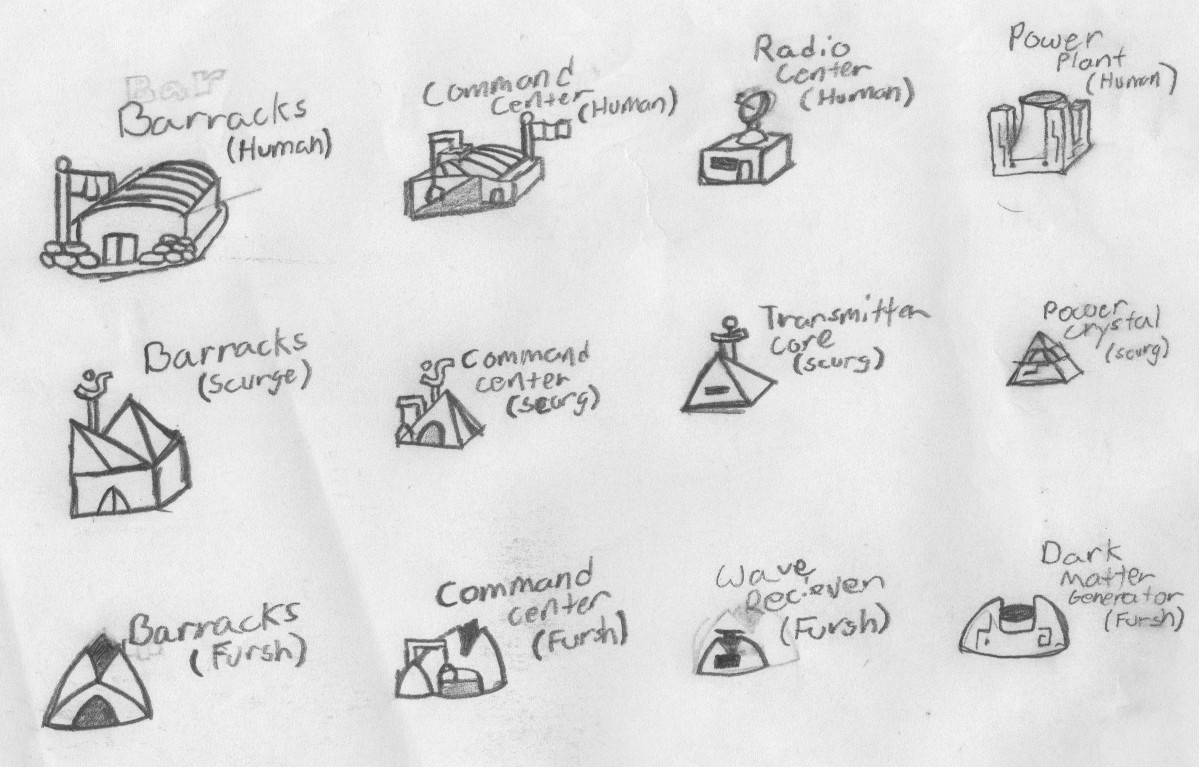 Bar
Barracks
(Human)
Command
Center
(Human)
Radio
Center
(Human)
Power
Plant
(Human)
Barracks
(Scurge)
Command
center
(scurg)
Transmitter
core
(scurg)
Power
crystal
(scurg)
Barracks
(Fursh)
Command
center
(Fursh)
Wave
Reciever
(Fursh)
Dark
Matter
Generator
(Fursh)